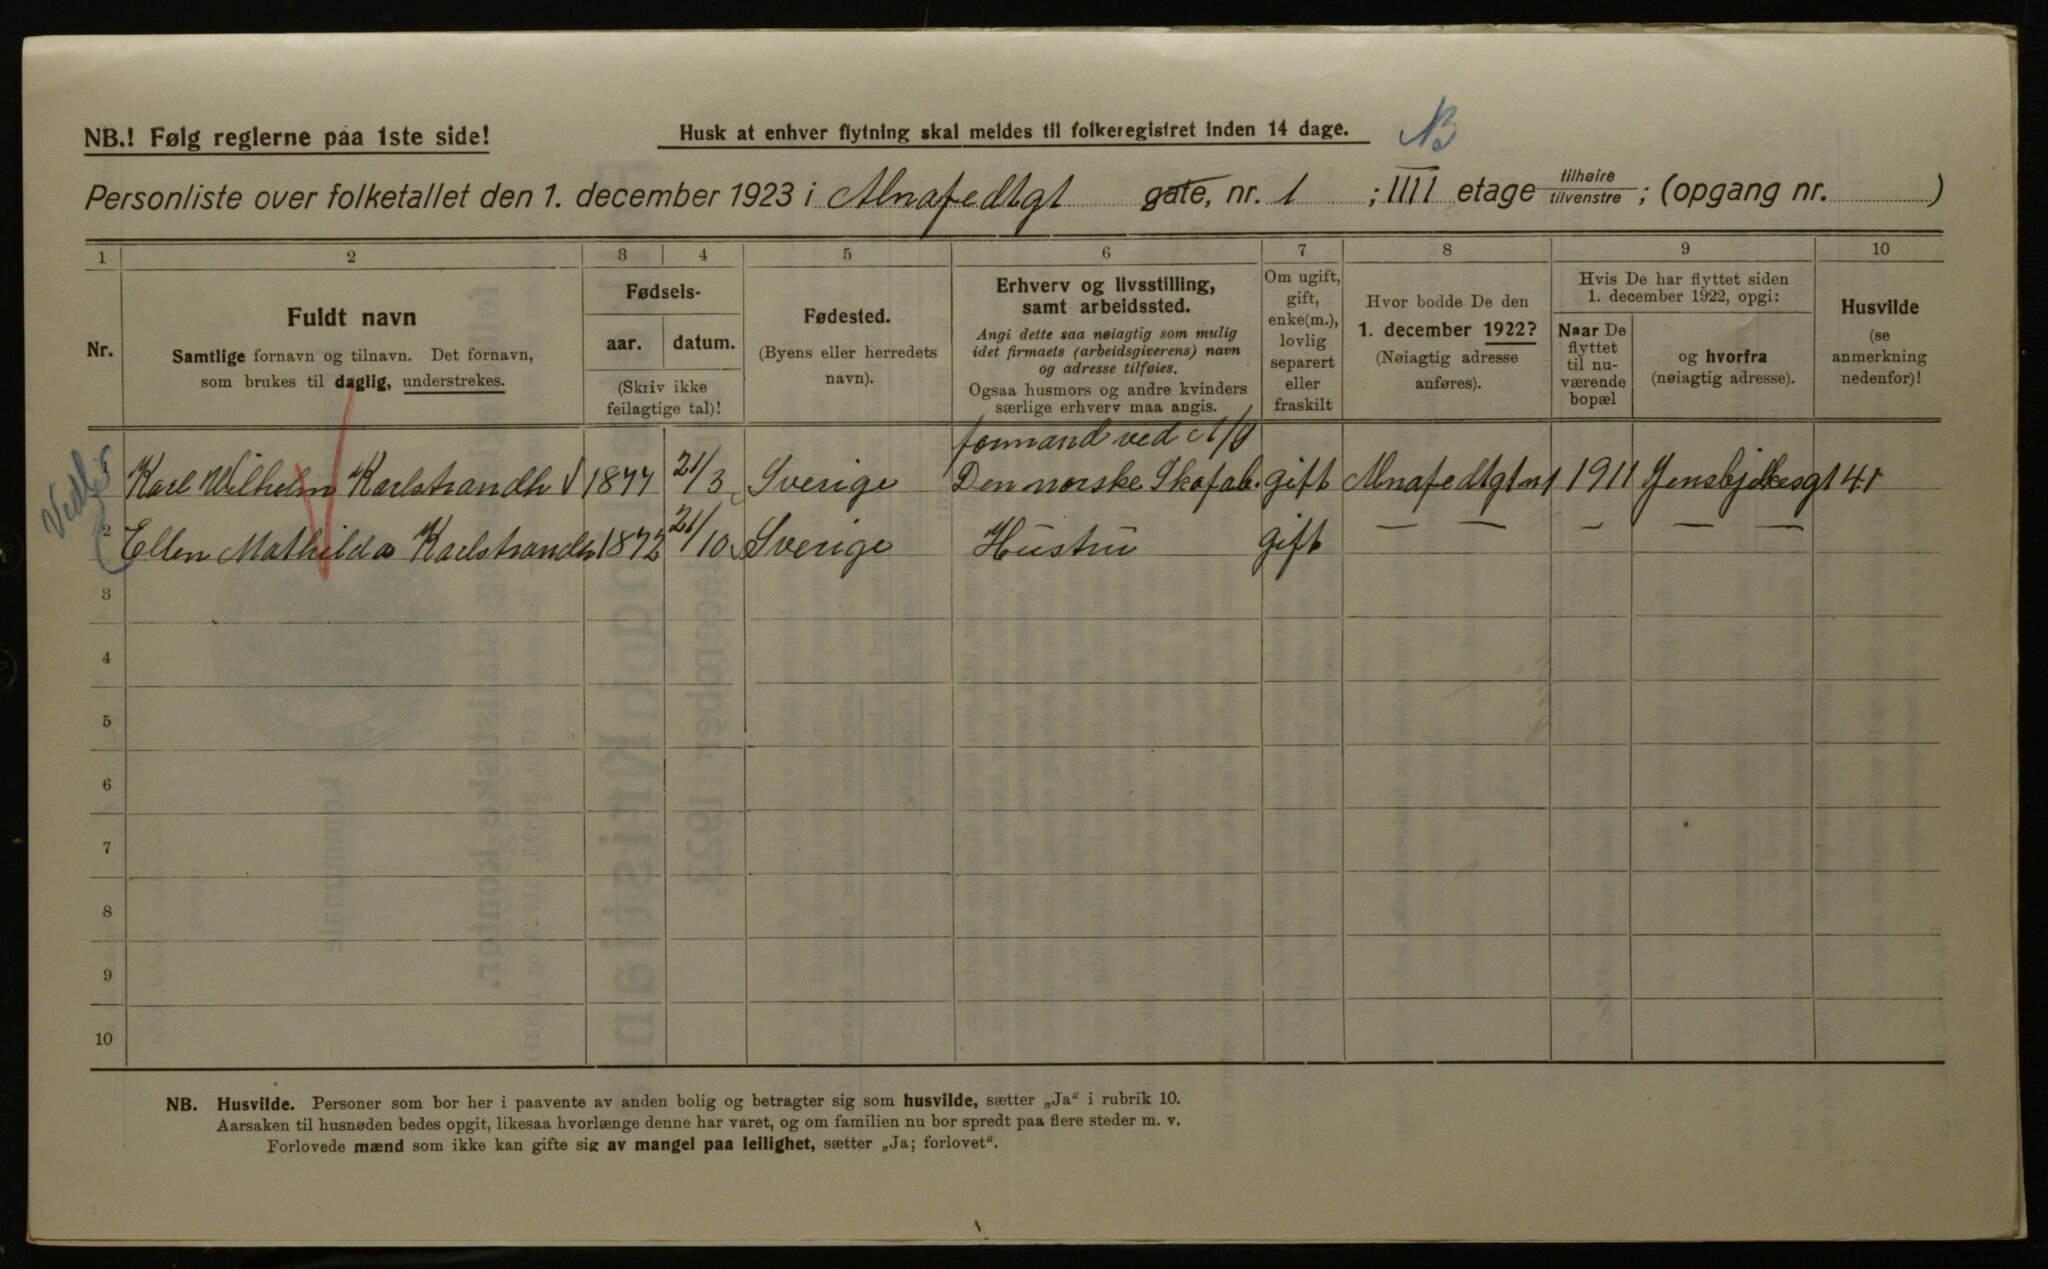 NB.! Følg reglerne paa 1ste side!
Husk at enhver flytning skal meldes til folkeregistret inden 14 dage.
NB
Personliste over folketallet den 1. december 1923 i Almafedtgt gate, nr. 1 ; IIII etage tilhøire tilvenstre ; (opgang nr. )
1 2 3 4 5 6 7 8 9 10
Nr.
Fuldt navn
Samtlige fornavn og tilnavn. Det fornavn,
som brukes til daglig, understrekes.
Fødsels-
aar. datum.
(Skriv ikke
feilagtige tal)!
Fødested.
(Byens eller herredets
navn).
Erhverv og livsstilling,
samt arbeidssted.
Angi dette saa nøiagtig som mulig
idet firmaets (arbeidsgiverens) navn
og adresse tilføies.
Ogsaa husmors og andre kvinders
særlige erhverv maa angis.
Om ugift,
gift,
enke(m.),
lovlig
separert
eller
fraskilt
Hvor bodde De den
1. december 1922?
(Nøiagtig adresse
anføres).
Hvis De har flyttet siden
1. december 1922, opgi:
Naar De
flyttet
til nu-
værende
bopæl
og hvorfra
(nøiagtig adresse).
Husvilde
(se
anmerkning
nedenfor)!
formand ved A/S
1 Karl Wilhelm Karlstrandh 1877 21/3 Sverige Den norske Skofab. gift Almafedtgt nr 1 1911 Jensbjelkesgt 41
2 Ellen Mathilda Karlstrandh 1872 21/10 Sverige Hustru gift — — — — —
3
4
5
6
7
8
9
10
NB. Husvilde. Personer som bor her i paavente av anden bolig og betragter sig som husvilde, sætter „Ja“ i rubrik 10.
Aarsaken til husnøden bedes opgit, likesaa hvorlænge denne har varet, og om familien nu bor spredt paa flere steder m. v.
Forlovede mænd som ikke kan gifte sig av mangel paa leilighet, sætter „Ja; forlovet“.